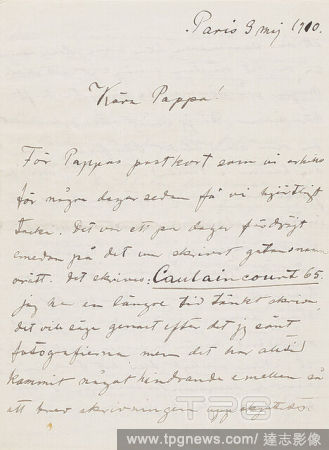 Paris 3 maj 1910.
Kära Pappa!
För Pappas postkort som vi erhöllo
för några dagar sedan få vi hjärtligt
tacka. Det var ett par dagar fördröjt
emedan på det var skrivet gatans namn
orätt. Det skrives: Caulaincourt 65.
jag har en längre tid tänkt skriva,
det vill säga genast efter det jag sänt
fotografierna men det har alltid
kommit något hindrande emellan så
att brevskrivningen uppskjutits.
TPG
www.tpgnews.com/達志影像